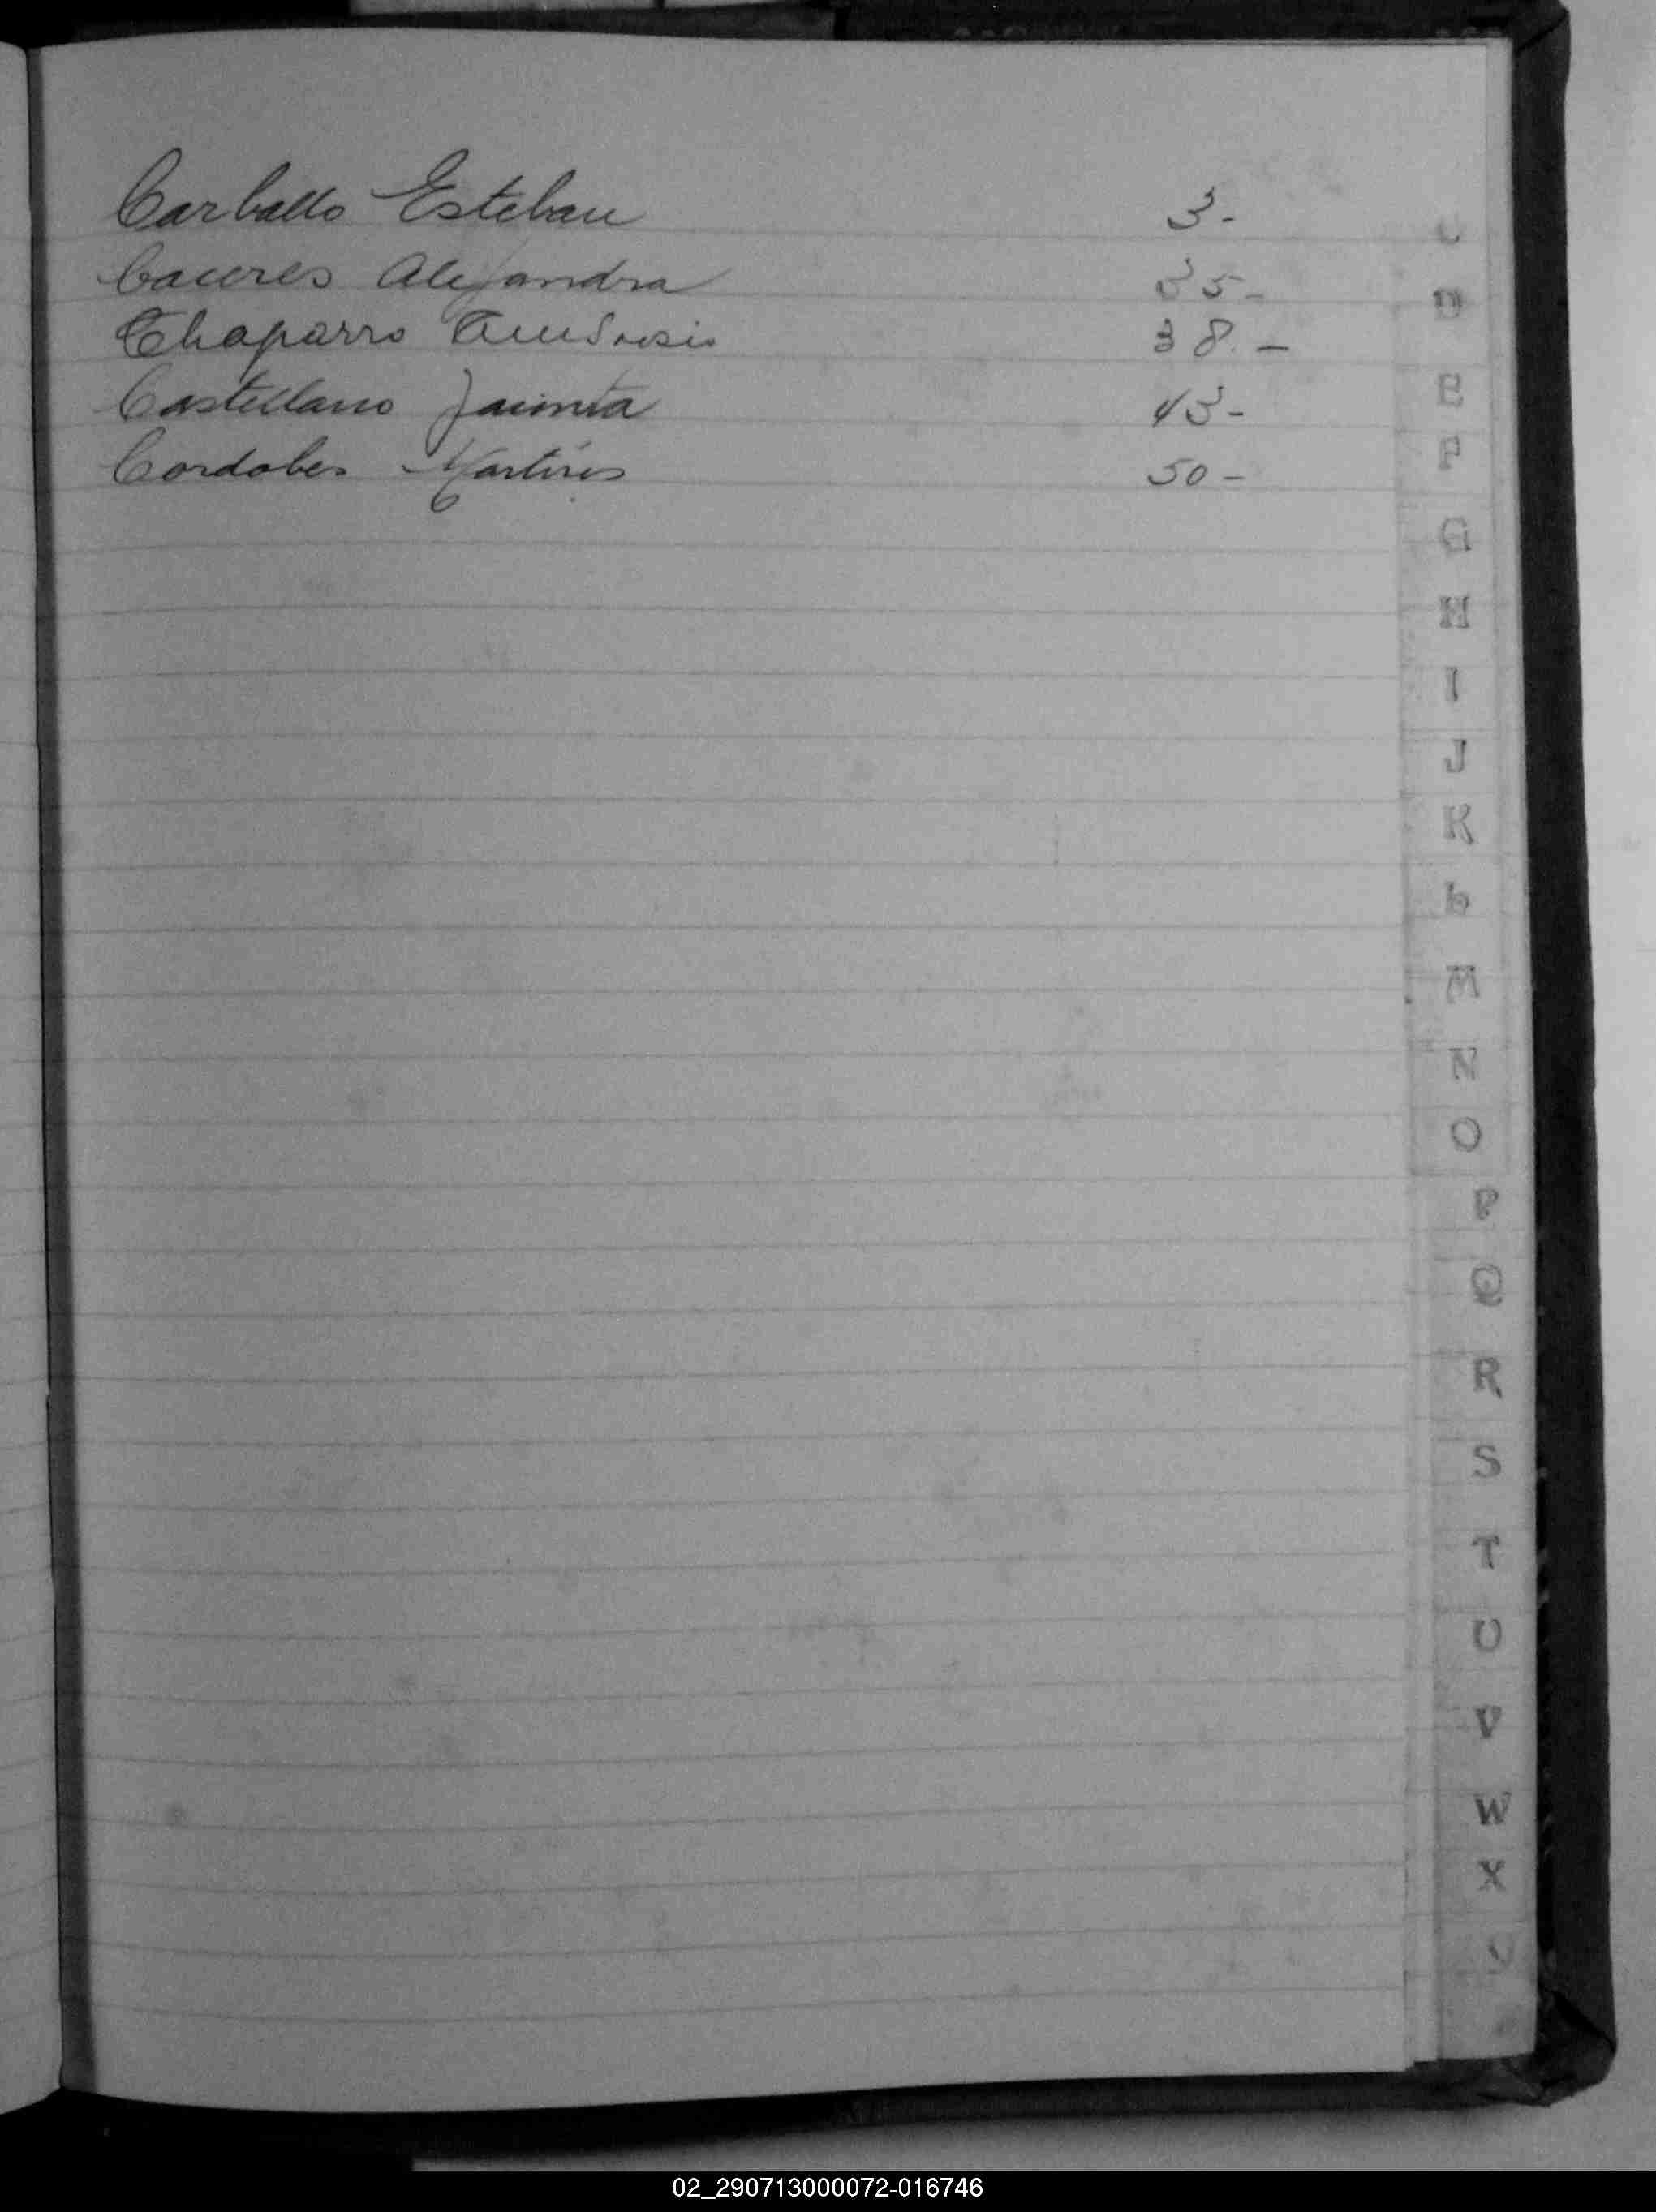 Carballo Esteban 3-
Caceres Alejandra 35-
Chaparro Ambrosio 38.-
Castellano Jacinta 43-
Cordobes Martires 50-
C
D
E
F
G
H
I
J
K
L
M
N
O
P
Q
R
S
T
U
V
W
X
02_290713000072-016746